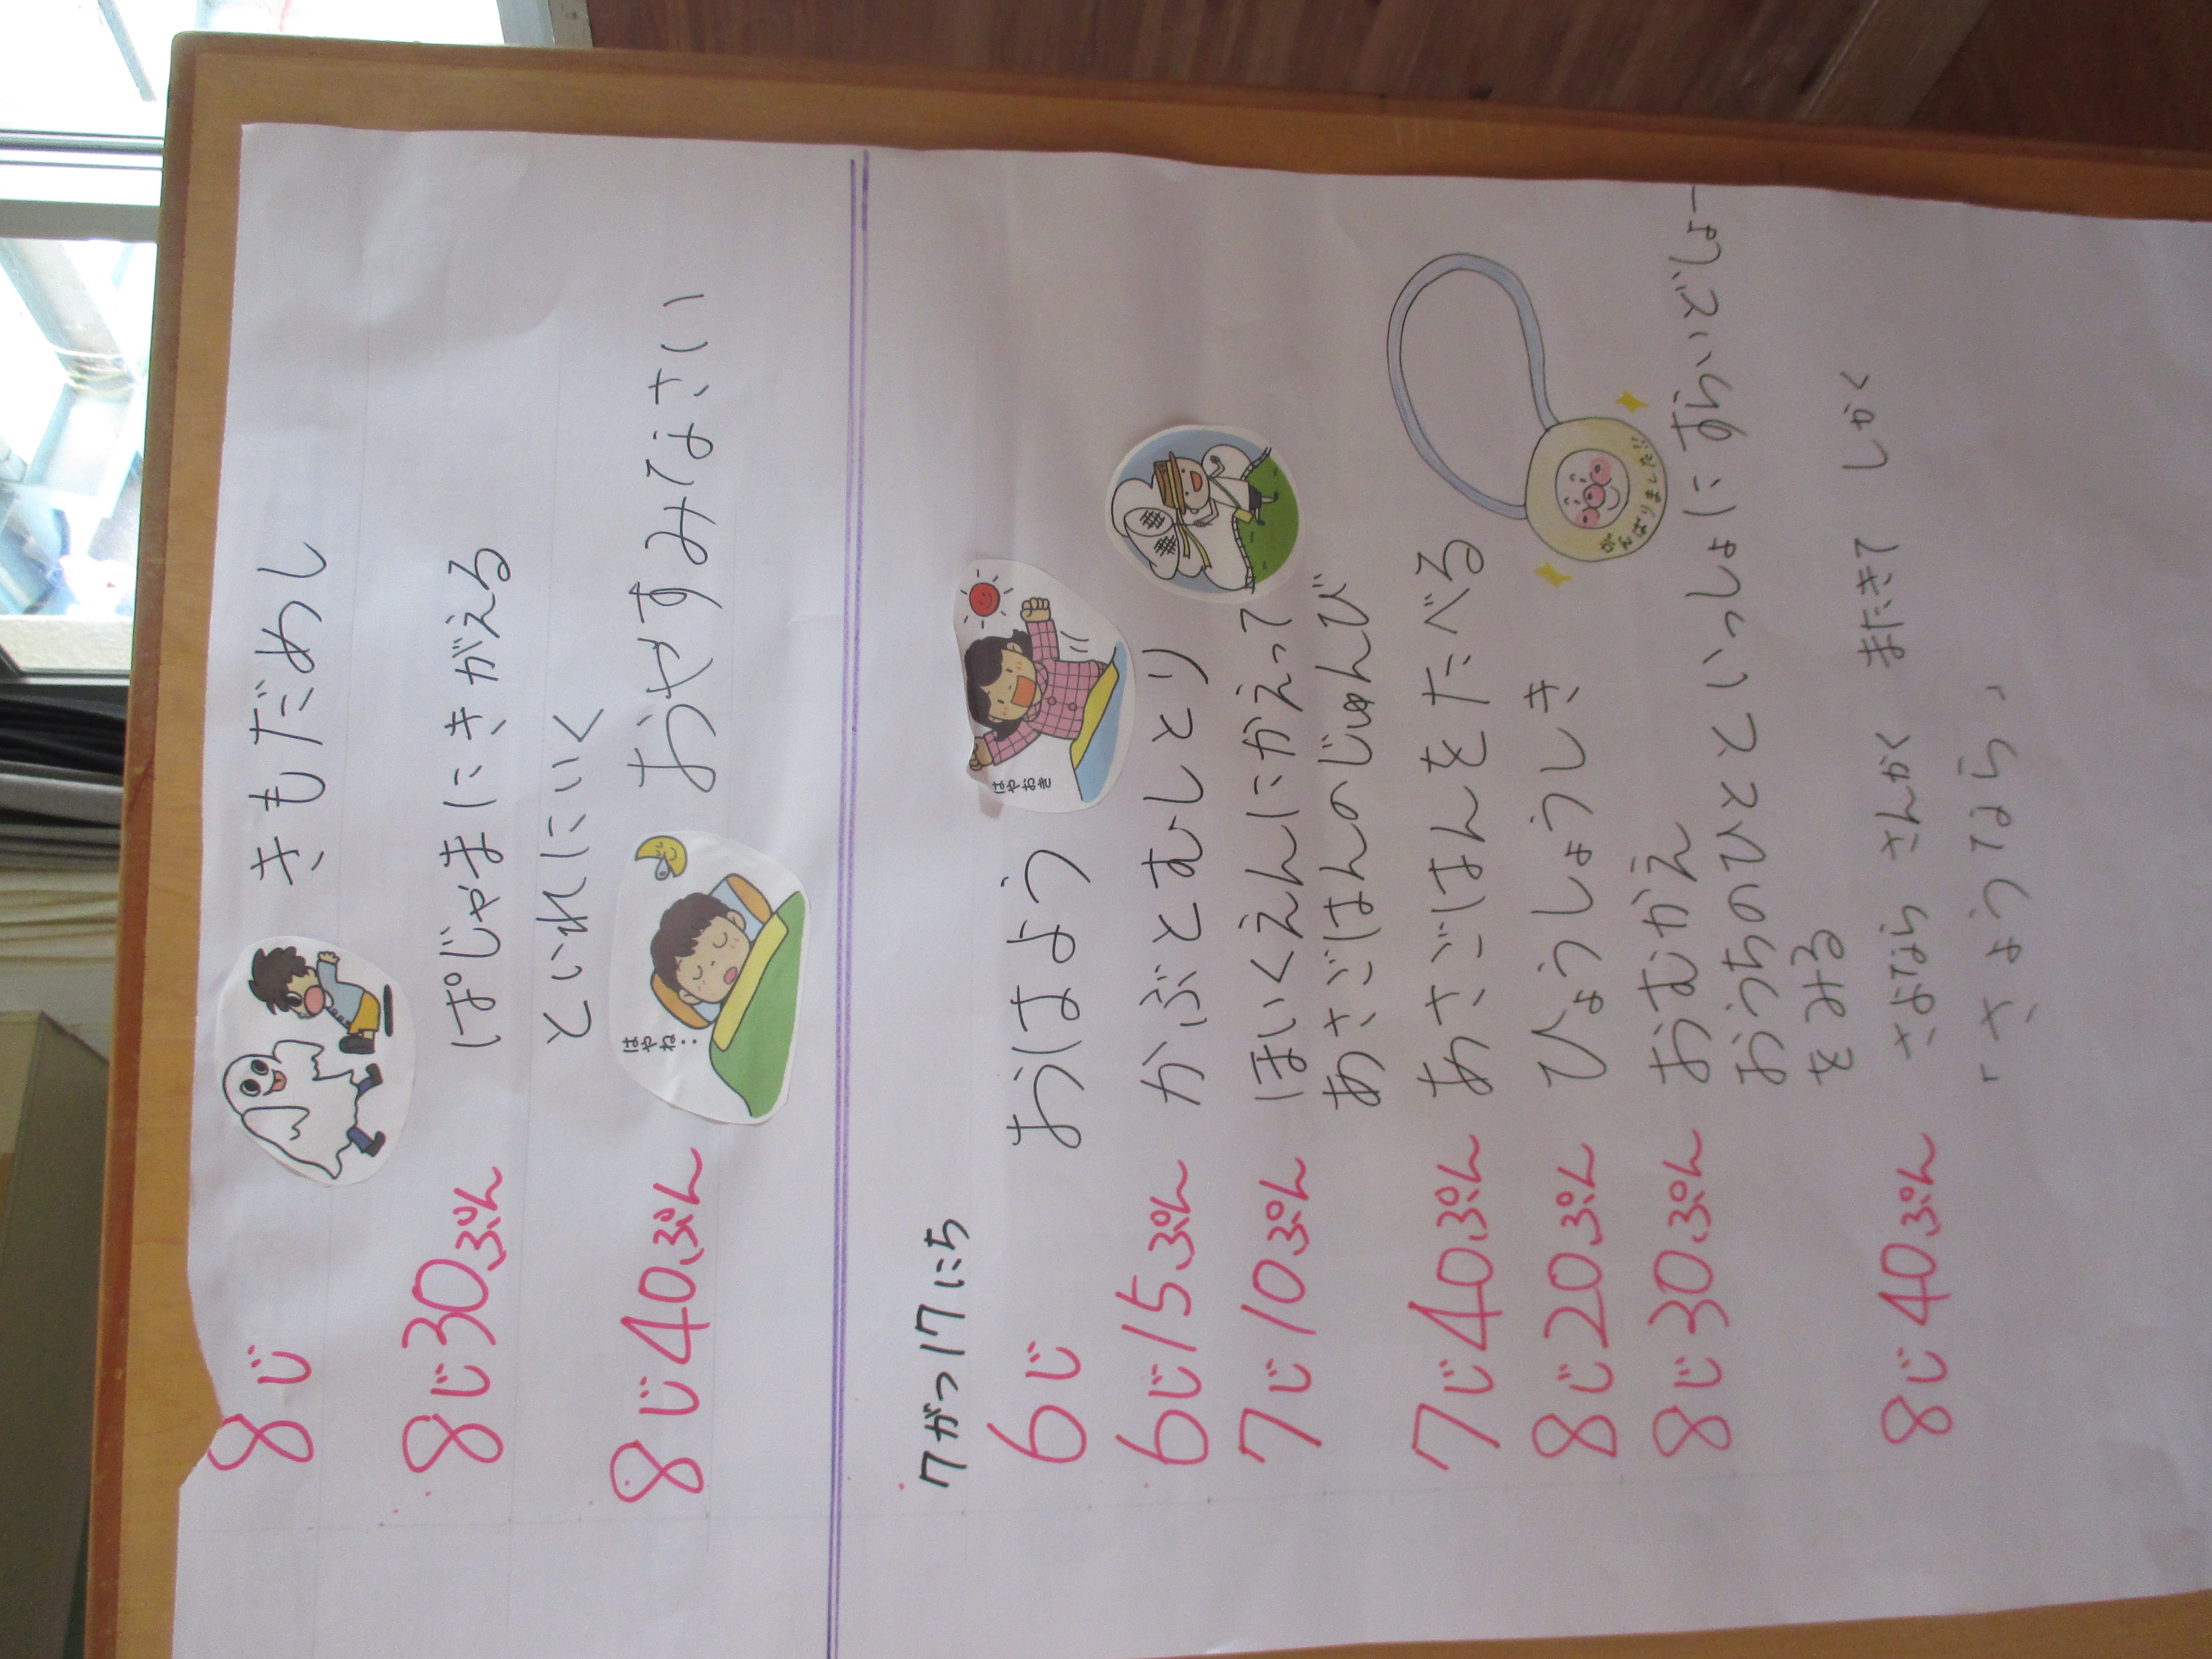 8じ きもだめし
8じ30ぷん ぱじゃまにきがえる
といれにいく
8じ40ぷん おやすみなさい
はやね・・
7がつ17にち
6じ おはよう
はやおき
6じ15ふん かぶとむしとり
7じ10ぷん ほいくえんにかえって
あさごはんのじゅんび
7じ40ぷん あさごはんをたべる
8じ20ぷん ひょうしょうしき
がんばりました!!
8じ30ぷん おむかえ
おうちのひとといっしょに すらいどしょー
をみる
8じ40ぷん さよなら さんかく またきて しかく
「さようなら」